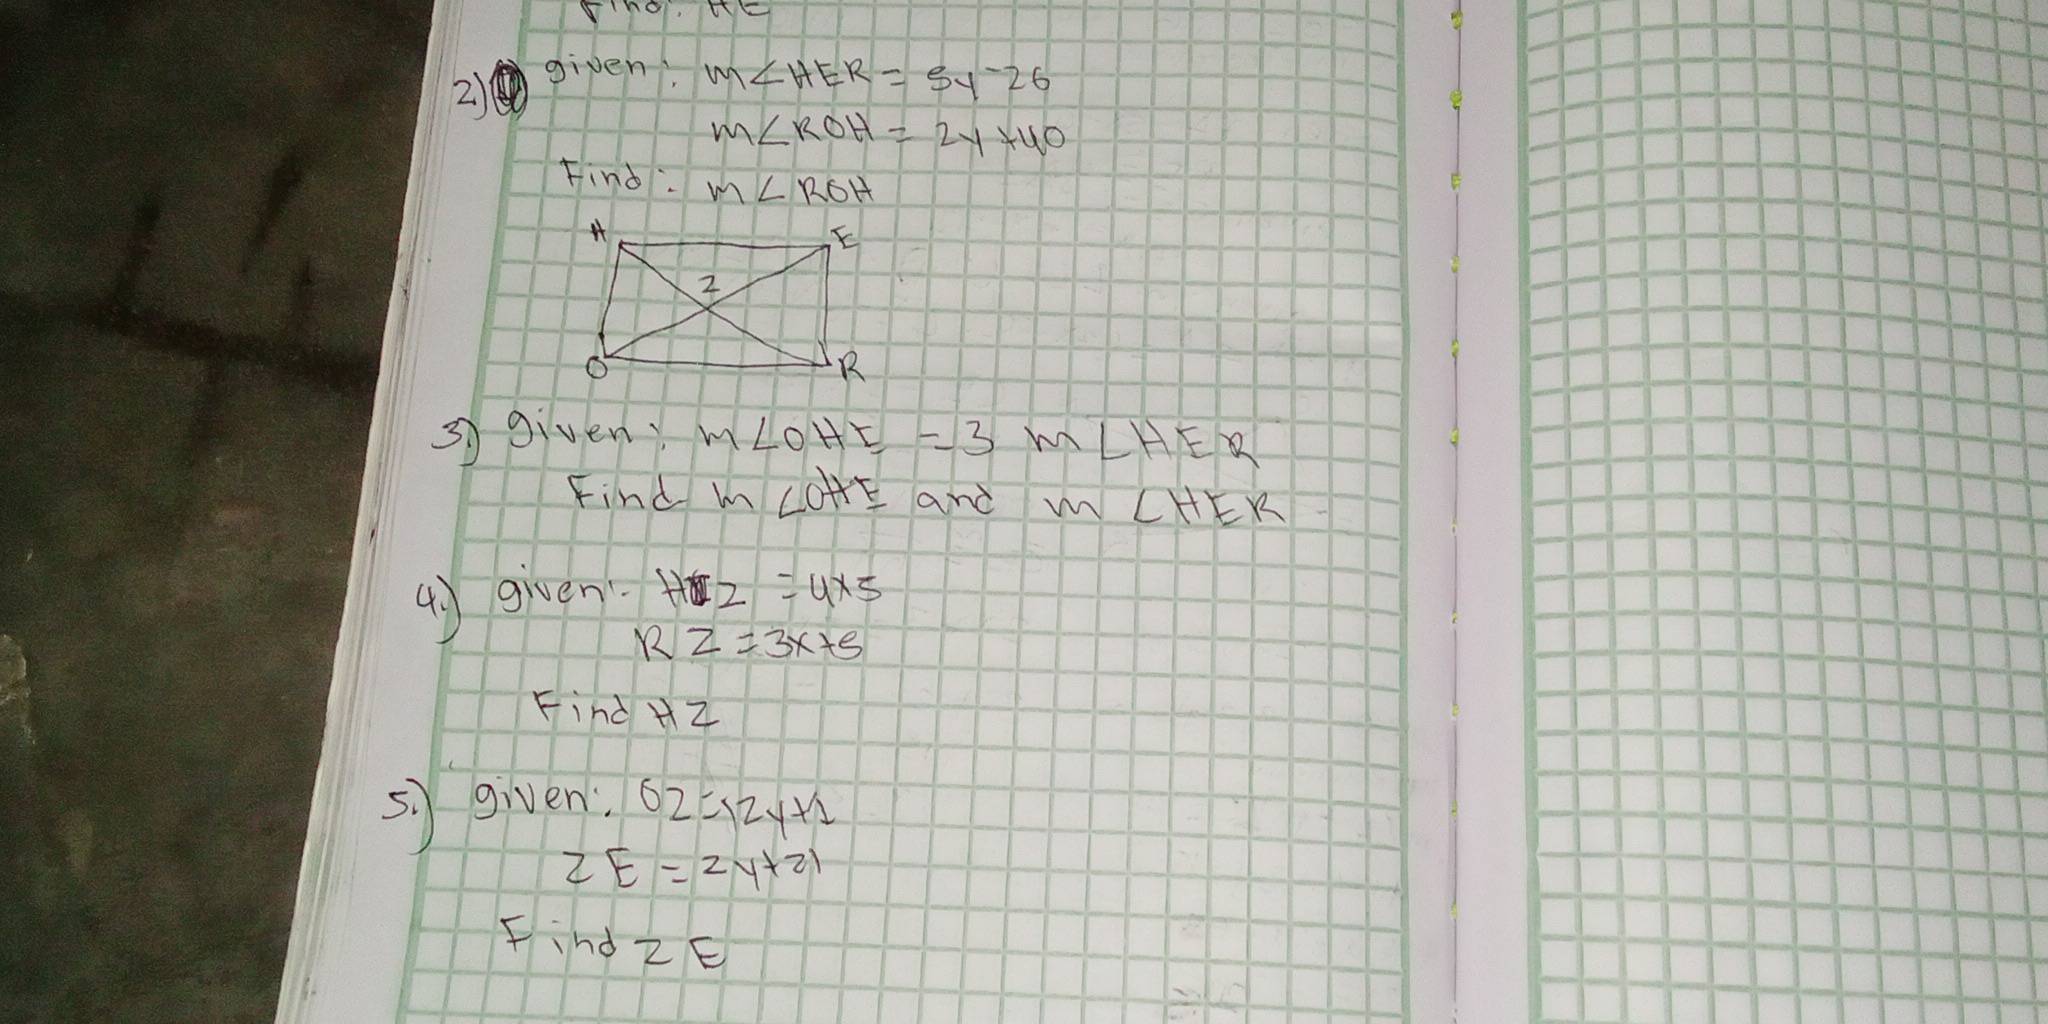 Find: HE
2.) given: m∠HER = 5y-26
m∠ROH = 2y+40
Find: m∠ROH
H E
Z
O R
3.) given: m∠OHE = 3 m∠HER
Find m∠OHE and m∠HER
4.) given: HZ = 4x5
RZ = 3x+5
Find HZ
5.) given: OZ=12y+1
ZE = 2y+21
Find ZE